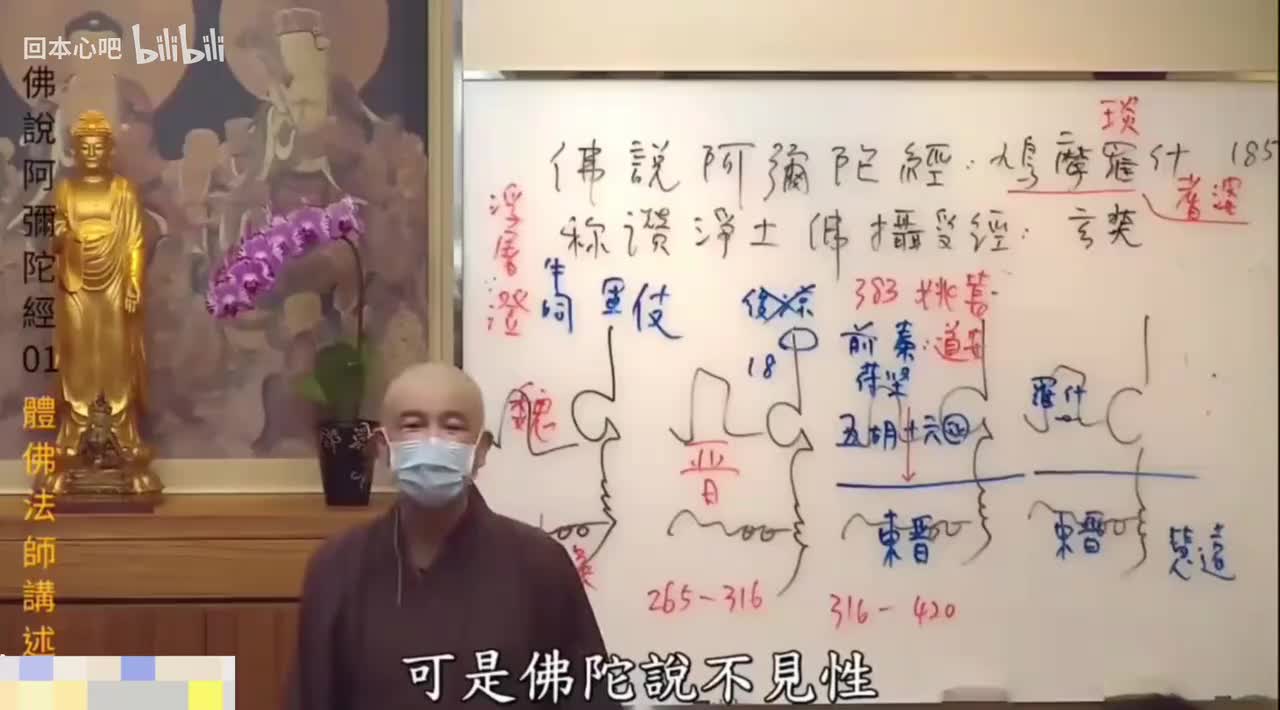 回本心吧 bilibili
佛說阿彌陀經01 體佛法師講述
琰
佛說阿彌陀經：鳩摩羅什 185
耆婆
稱讚淨土佛攝受經：玄奘
浮屠澄
383 姚萇
後秦
18
前秦：道安
苻堅
五胡十六國
羅什
魏
晉
東晉
東晉
慧遠
265-316
316-420
可是佛陀說不見性